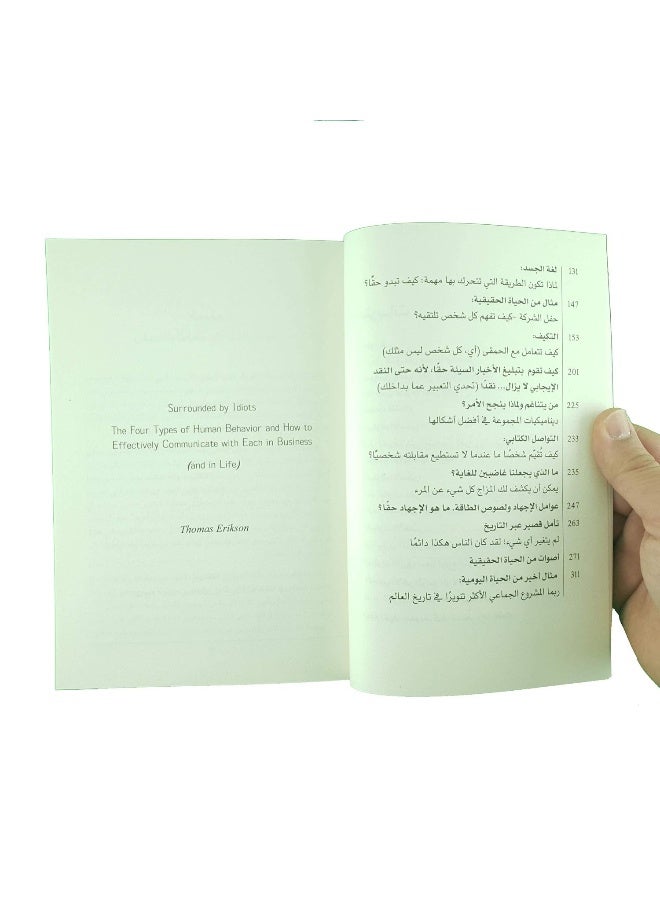 لغة الجسد: 131
لماذا تكون الطريقة التي تتحرك بها مهمة: كيف تبدو حقًا؟
مثال من الحياة الحقيقية: 147
حفل الشركة -كيف تفهم كل شخص تلتقيه؟
التكيف: 153
كيف تتعامل مع الحمقى (أي، كل شخص ليس مثلك)
كيف تقوم بتبليغ الأخبار السيئة حقًا، لأنه حتى النقد 201
الإيجابي لا يزال... نقدًا (تحدي التعبير عما بداخلك)
من يتناغم ولماذا ينجح الأمر؟ 225
ديناميكيات المجموعة في أفضل أشكالها
التواصل الكتابي: 233
كيف تُقيّم شخصًا ما عندما لا تستطيع مقابلته شخصيًا؟
ما الذي يجعلنا غاضبين للغاية؟ 235
يمكن أن يكشف لك المزاج كل شيء عن المرء
عوامل الإجهاد ولصوص الطاقة. ما هو الإجهاد حقًا؟ 247
تأمل قصير عبر التاريخ 263
لم يتغير أي شيء؛ لقد كان الناس هكذا دائمًا
أصوات من الحياة الحقيقية 271
مثال أخير من الحياة اليومية: 311
ربما المشروع الجماعي الأكثر تنويرًا في تاريخ العالم
Surrounded by Idiots
The Four Types of Human Behavior and How to
Effectively Communicate with Each in Business
(and in Life)
Thomas Erikson